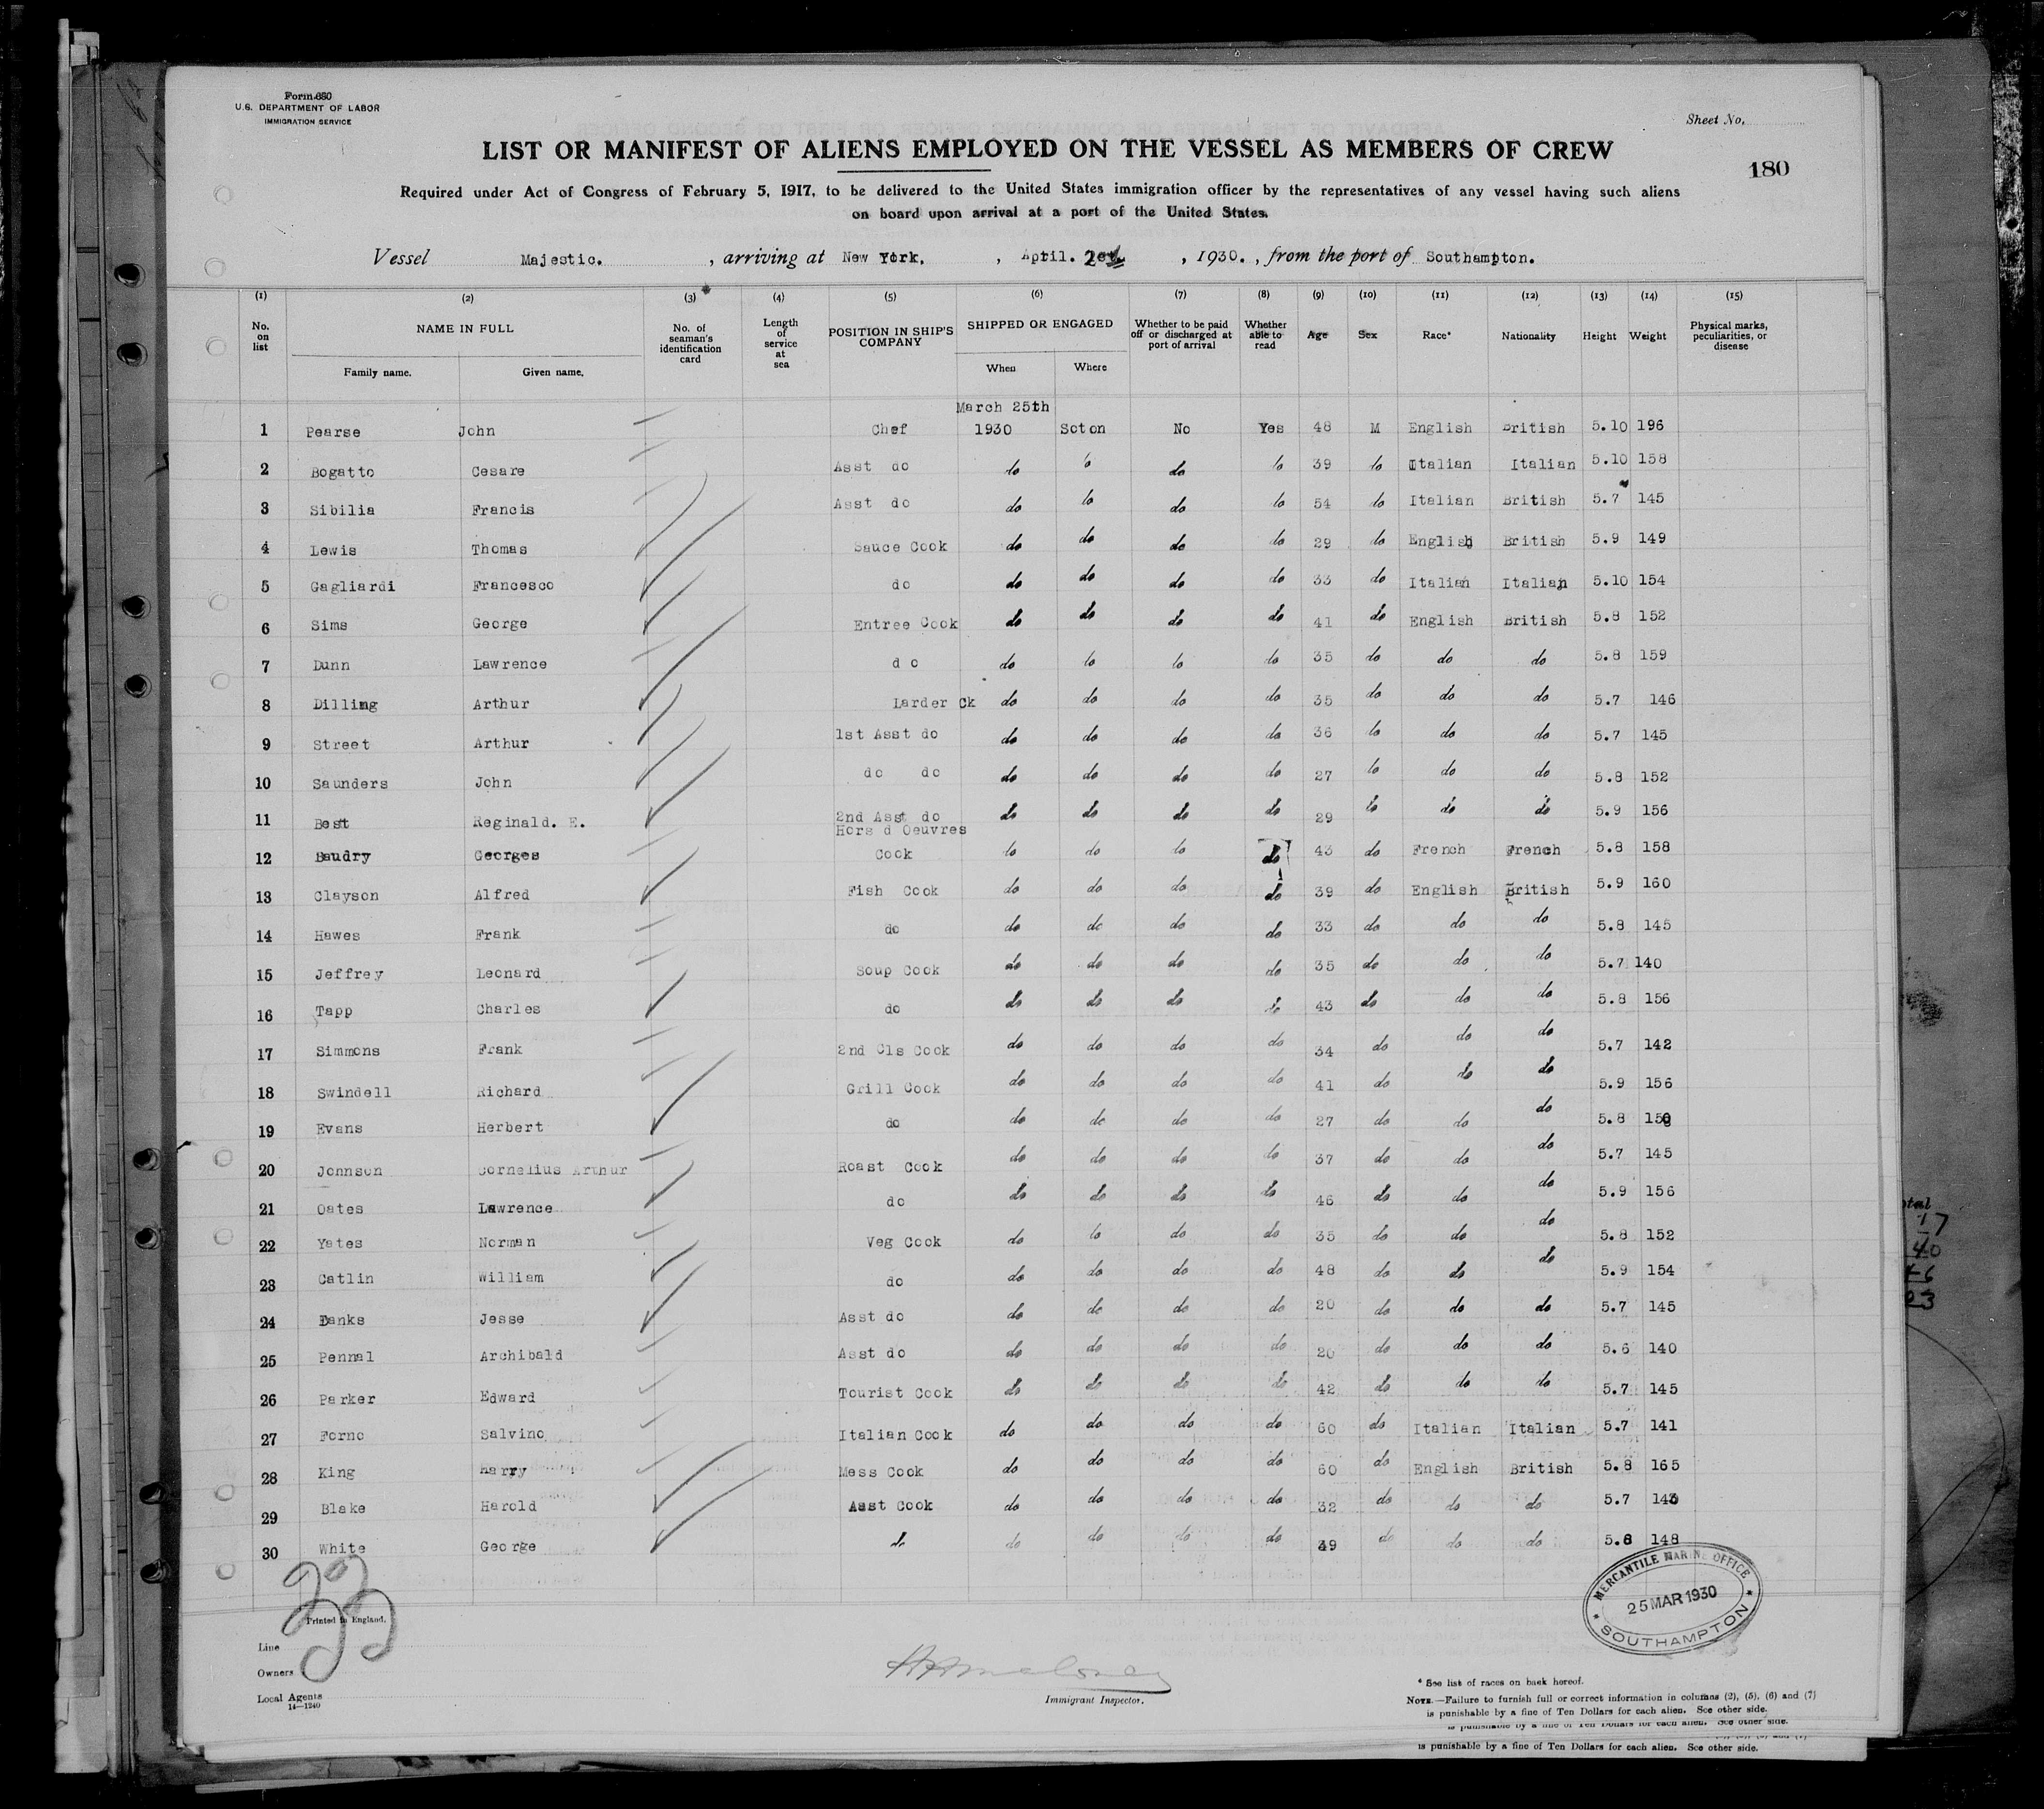 Form 680
U.S. DEPARTMENT OF LABOR
IMMIGRATION SERVICE
Sheet No.
LIST OR MANIFEST OF ALIENS EMPLOYED ON THE VESSEL AS MEMBERS OF CREW
180
Required under Act of Congress of February 5, 1917, to be delivered to the United States immigration officer by the representatives of any vessel having such aliens
on board upon arrival at a port of the United States.
Vessel Majestic. , arriving at New York. , April. , 1930. , from the port of Southampton.
(1) (2) (3) (4) (5) (6) (7) (8) (9) (10) (11) (12) (13) (14) (15)
No. on list NAME IN FULL No. of seaman's identification card Length of service at sea POSITION IN SHIP'S COMPANY SHIPPED OR ENGAGED Whether to be paid off or discharged at port of arrival Whether able to read Age Sex Race* Nationality Height Weight Physical marks, peculiarities, or disease
Family name. Given name. When Where
March 25th
1 Pearse John Chef 1930 Soton No Yes 48 M English British 5.10 196
2 Bogatto Cesare Asst do do do do do 39 do Italian Italian 5.10 158
3 Sibilia Francis Asst do do do do do 54 do Italian British 5.7 145
4 Lewis Thomas Sauce Cook do do do do 29 do English British 5.9 149
5 Gagliardi Francesco do do do do do 33 do Italian Italian 5.10 154
6 Sims George Entree Cook do do do do 41 do English British 5.8 152
7 Dunn Lawrence do do do do do 35 do do do 5.8 159
8 Dilling Arthur Larder Ck do do do do 35 do do do 5.7 146
9 Street Arthur 1st Asst do do do do do 36 do do do 5.7 145
10 Saunders John do do do do do do 27 do do do 5.8 152
11 Best Reginald. E. 2nd Asst do do do do do 29 do do do 5.9 156
Hors d Oeuvres
12 Baudry Georges Cook do do do do 43 do French French 5.8 158
13 Clayson Alfred Fish Cook do do do do 39 do English British 5.9 160
14 Hawes Frank do do do do do 33 do do do 5.8 145
15 Jeffrey Leonard Soup Cook do do do do 35 do do do 5.7 140
16 Tapp Charles do do do do do 43 do do do 5.8 156
17 Simmons Frank 2nd Cls Cook do do do do 34 do do do 5.7 142
18 Swindell Richard Grill Cook do do do do 41 do do do 5.9 156
19 Evans Herbert do do do do do 27 do do do 5.8
20 Johnson Cornelius Arthur Roast Cook do do do do 37 do do do 5.7 145
21 Oates Lawrence do do do do do 46 do do do 5.9 156
22 Yates Norman Veg Cook do do do do 35 do do do 5.8 152
23 Catlin William do do do do do 48 do do do 5.9 154
24 Jesse Asst do do do do do 20 do do do 5.7 145
25 Pennal Archibald Asst do do do do do 20 do do do 5.6 140
26 Parker Edward Tourist Cook do do do do 42 do do do 5.7 145
27 Forno Salvino Italian Cook do do do do 60 do Italian Italian 5.7 141
28 King Harry Mess Cook do do do do 60 do English British 5.8 165
29 Blake Harold Asst Cook do do do do 32 do do do 5.7 143
30 White George do do do do do 49 do do do 5.8 148
MERCANTILE MARINE OFFICE
25 MAR 1930
SOUTHAMPTON
Printed in England.
Line
Owners
Local Agents
14—1240
Immigrant Inspector.
* See list of races on back hereof.
NOTE.—Failure to furnish full or correct information in columns (2), (5), (6) and (7)
is punishable by a fine of Ten Dollars for each alien. See other side.
is punishable by a fine of Ten Dollars for each alien. See other side.
is punishable by a fine of Ten Dollars for each alien. See other side.